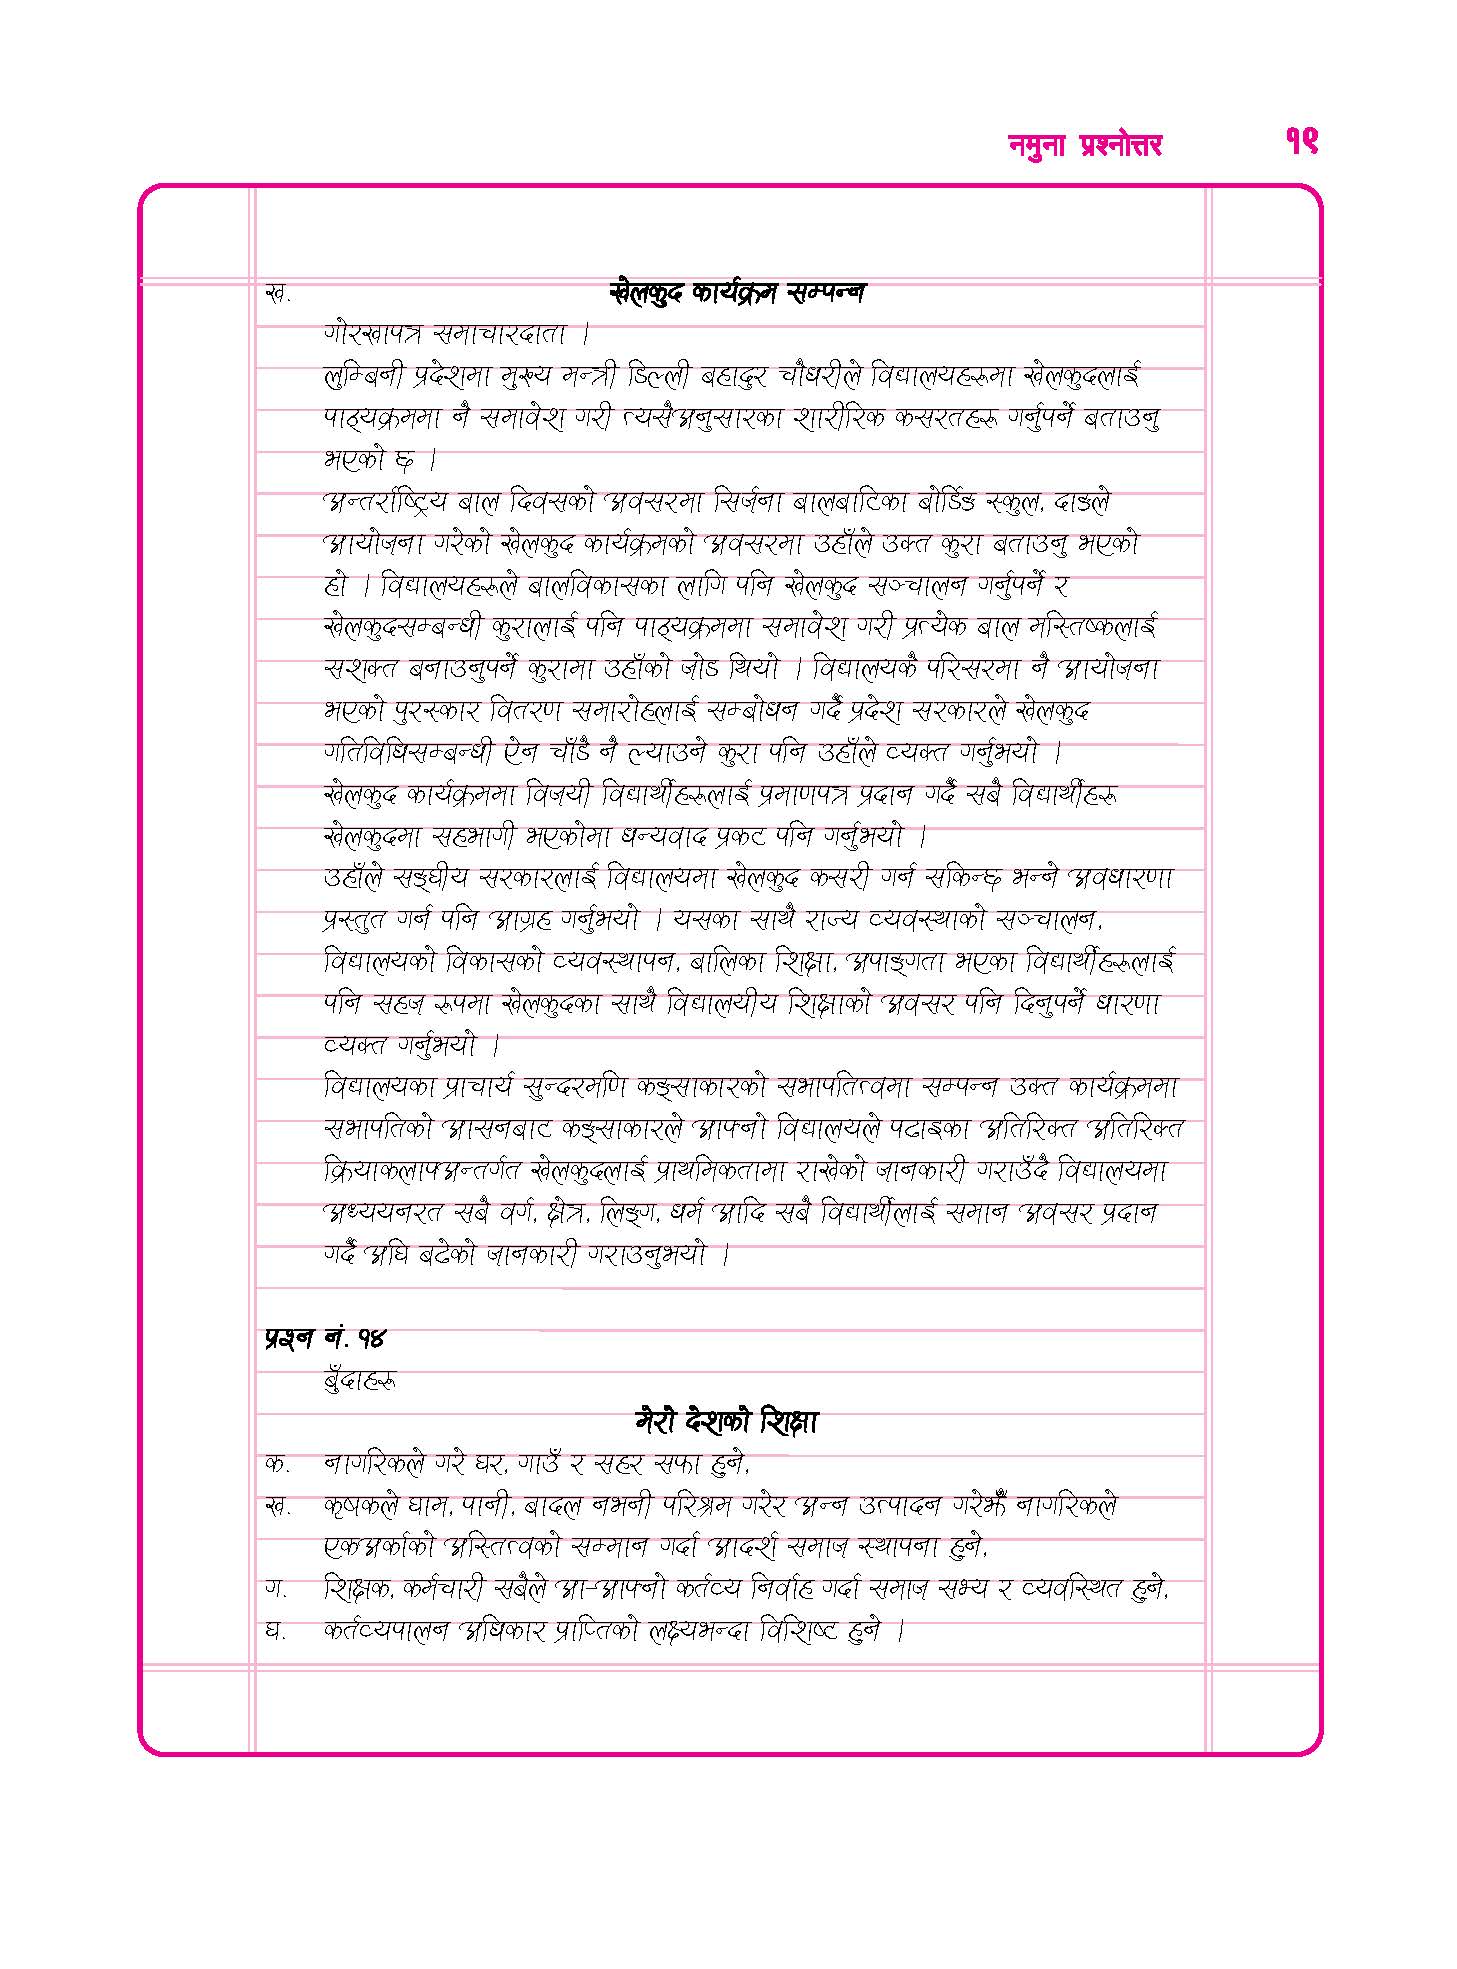 नमुना प्रश्नोत्तर १९
ख. खेलकुद कार्यक्रम सम्पन्न
गोरखापत्र समाचारदाता ।
लुम्बिनी प्रदेशमा मुख्य मन्त्री डिल्ली बहादुर चौधरीले विद्यालयहरूमा खेलकुदलाई
पाठ्यक्रममा नै समावेश गरी त्यसैअनुसारका शारीरिक कसरतहरू गर्नुपर्ने बताउनु
भएको छ ।
अन्तर्राष्ट्रिय बाल दिवसको अवसरमा सिर्जना बालबाटिका बोर्डिङ स्कुल, दाङले
आयोजना गरेको खेलकुद कार्यक्रमको अवसरमा उहाँले उक्त कुरा बताउनु भएको
हो । विद्यालयहरूले बालविकासका लागि पनि खेलकुद सञ्चालन गर्नुपर्ने र
खेलकुदसम्बन्धी कुरालाई पनि पाठ्यक्रममा समावेश गरी प्रत्येक बाल मस्तिष्कलाई
सशक्त बनाउनुपर्ने कुरामा उहाँको जोड थियो । विद्यालयकै परिसरमा नै आयोजना
भएको पुरस्कार वितरण समारोहलाई सम्बोधन गर्दै प्रदेश सरकारले खेलकुद
गतिविधिसम्बन्धी ऐन चाँडै नै ल्याउने कुरा पनि उहाँले व्यक्त गर्नुभयो ।
खेलकुद कार्यक्रममा विजयी विद्यार्थीहरूलाई प्रमाणपत्र प्रदान गर्दै सबै विद्यार्थीहरू
खेलकुदमा सहभागी भएकोमा धन्यवाद प्रकट पनि गर्नुभयो ।
उहाँले सङ्घीय सरकारलाई विद्यालयमा खेलकुद कसरी गर्न सकिन्छ भन्ने अवधारणा
प्रस्तुत गर्न पनि आग्रह गर्नुभयो । यसका साथै राज्य व्यवस्थाको सञ्चालन,
विद्यालयको विकासको व्यवस्थापन, बालिका शिक्षा, अपाङ्गता भएका विद्यार्थीहरूलाई
पनि सहज रूपमा खेलकुदका साथै विद्यालयीय शिक्षाको अवसर पनि दिनुपर्ने धारणा
व्यक्त गर्नुभयो ।
विद्यालयका प्राचार्य सुन्दरमणि कङ्साकारको सभापतित्वमा सम्पन्न उक्त कार्यक्रममा
सभापतिको आसनबाट कङ्साकारले आफ्नो विद्यालयले पढाइका अतिरिक्त अतिरिक्त
क्रियाकलापअन्तर्गत खेलकुदलाई प्राथमिकतामा राखेको जानकारी गराउँदै विद्यालयमा
अध्ययनरत सबै वर्ग, क्षेत्र, लिङ्ग, धर्म आदि सबै विद्यार्थीलाई समान अवसर प्रदान
गर्दै अघि बढेको जानकारी गराउनुभयो ।
प्रश्न नं. १४
बुँदाहरू
मेरो देशको शिक्षा
क. नागरिकले गरे घर, गाउँ र सहर सफा हुने,
ख. कृषकले घाम, पानी, बादल नभनी परिश्रम गरेर अन्न उत्पादन गरेझैँ नागरिकले
एकअर्काको अस्तित्वको सम्मान गर्दा आदर्श समाज स्थापना हुने,
ग. शिक्षक, कर्मचारी सबैले आ-आफ्नो कर्तव्य निर्वाह गर्दा समाज सभ्य र व्यवस्थित हुने,
घ. कर्तव्यपालन अधिकार प्राप्तिको लक्ष्यभन्दा विशिष्ट हुने ।